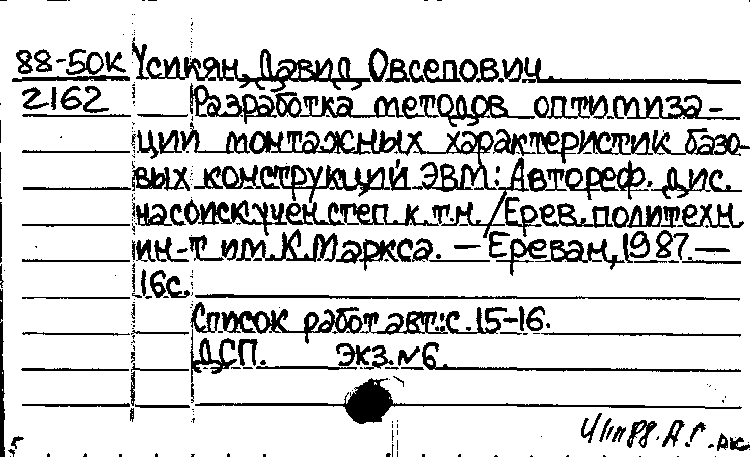 88-50К Усикян, Давид Овсепович.
2162 Разработка методов оптимиза-
ции монтажных характеристик базо-
вых конструкций ЭВМ: Автореф. дис.
на соиск. учен. степ. к.т.н. / Ерев. политехн.
ин-т им. К. Маркса. — Ереван, 1987. —
16с.
Список работ авт.: с. 15-16.
ДСП. Экз. №6.
5